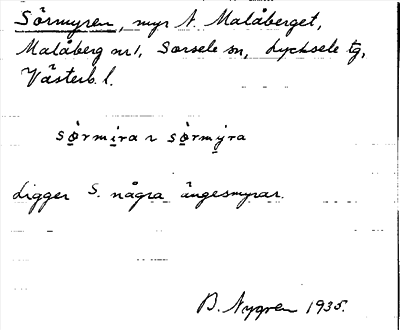 Sörmyren, myr N. Malåberget,
Malåberg nr 1, Sorsele sn, Lycksele tg,
Västerb. l.
sö̀rmira r sö̀rmyra
Ligger S. några ängesmyrar.
B. Nygren 1935.